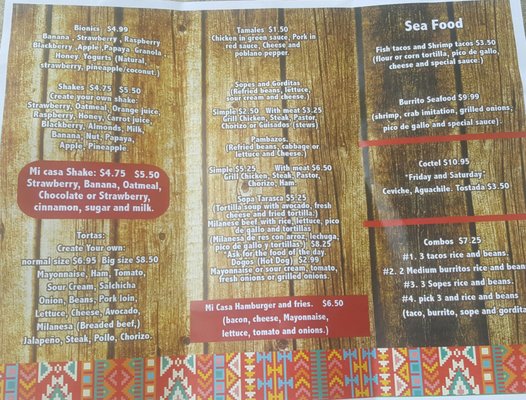 Bionics $4.99
Banana , Strawberry , Raspberry
Blackberry ,Apple),Papaya Granola ,
Honey. Yogurts (Natural,
strawberry, pineapple/coconut.)
Shakes $4.75 $5.50
Create your own shake:
Strawberry, Oatmeal, Orange juice,
Raspberry, Honey, Carrot juice,
Blackberry, Almonds, Milk,
Banana, Nut, Papaya,
Apple, Pineapple
Mi casa Shake: $4.75 $5.50
Strawberry, Banana, Oatmeal,
Chocolate or Strawberry,
cinnamon, sugar and milk.
Tortas:
Create Your own:
normal size $6.95 Big size $8.50
Mayonnaise, Ham, Tomato,
Sour Cream, Salchicha
Onion, Beans, Pork loin,
Lettuce, Cheese, Avocado,
Milanesa (Breaded beef,)
Jalapeno, Steak, Pollo, Chorizo.
Tamales $1.50
Chicken in green sauce, Pork in
red sauce, Cheese and
poblano pepper.
Sopes and Gorditas
(Refried beans, lettuce,
sour cream and cheese.)
Simple $2.50 With meat $3.25
Grill Chicken, Steak, Pastor,
Chorizo or Guisados (stews)
Pambazos.
(Refried beans, cabbage or
lettuce and Cheese.)
Simple $5.25 With meat $6.50
Grill Chicken, Steak, Pastor,
Chorizo, Ham
Sopa Tarasca $5.25
(Tortilla soup with avocado, fresh
cheese and fried tortilla.)
Milanese beef with rice, lettuce, pico
de gallo and tortillas
(Milanesa de res con arroz, lechuga,
pico de gallo y tortillas.) $8.25
Ask for the food of the day
Dogos (Hot Dog) $2.99
Mayonnaise or sour cream, tomato,
fresh onions or grilled onions.
Mi Casa Hamburger and fries. $6.50
(bacon, cheese, Mayonnaise,
lettuce, tomato and onions.)
Sea Food
Fish tacos and Shrimp tacos $3.50
(flour or corn tortilla, pico de gallo,
cheese and special sauce.)
Burrito Seafood $9.99
(shrimp, crab imitation, grilled onions,
pico de gallo and special sauce).
Coctel $10.95
"Friday and Saturday"
Ceviche, Aguachile. Tostada $3.50
Combos $7.25
#1. 3 tacos rice and beans.
#2. 2 Medium burritos rice and bean
#3. 3 Sopes rice and beans.
#4. pick 3 and rice and beans
(taco, burrito, sope and gordita